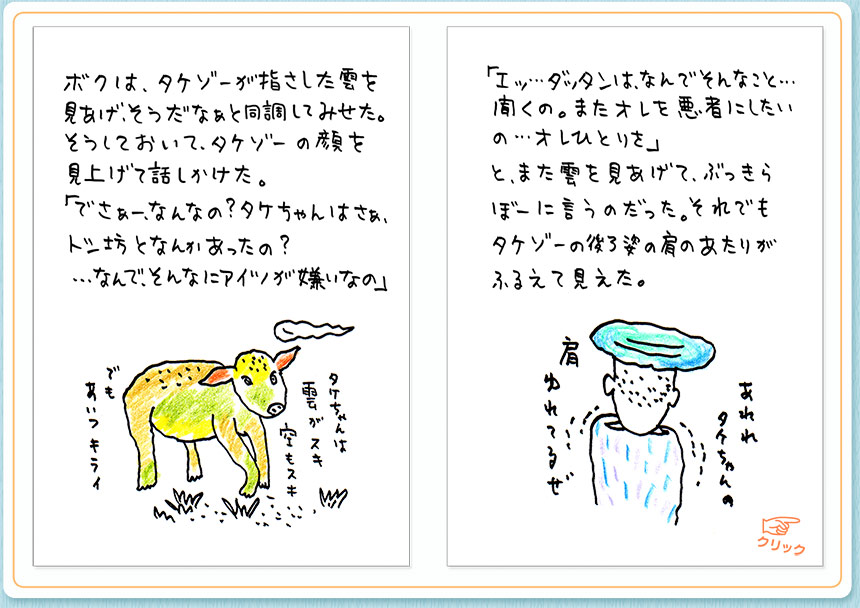 ボクは、タケゾーが指さした雲を
見あげ、そうだなぁと同調してみせた。
そうしておいて、タケゾーの顔を
見上げて話しかけた。
「でさぁー、なんなの？タケちゃんはさぁ、
ドン坊となんかあったの？
…なんで、そんなにアイツが嫌いなの」
タケちゃんは
雲がスキ
空もスキ
でも
あいつキライ
「エッ…ダッタンは、なんでそんなこと…
聞くの。またオレを悪者にしたい
の…オレひとりを」
と、また雲を見あげて、ぶっきら
ぼーに言うのだった。それでも
タケゾーの後ろ姿の肩のあたりが
ふるえて見えた。
あれれ
タケちゃんの
肩
ゆれてるぜ
クリック